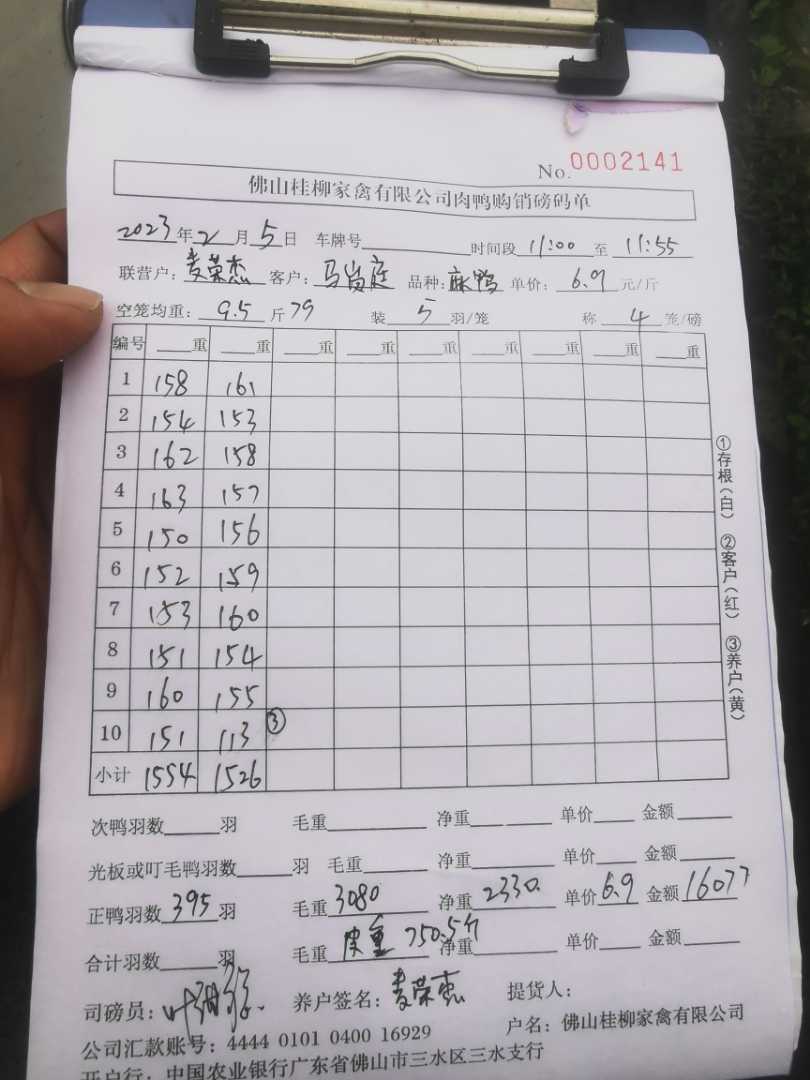 No. 0002141
佛山桂柳家禽有限公司肉鸭购销磅码单
2023年2月5日 车牌号 时间段 11:00 至 11:55
联营户：麦荣杰 客户：马苗庭 品种：麻鸭 单价：6.9元/斤
空笼均重：9.5斤 79 装5羽/笼 称4笼/磅
编号 重 重 重 重 重 重 重 重 重
1 158 161
2 154 153
3 162 158
4 163 157
5 150 156
6 152 159
7 153 160
8 151 154
9 160 155
10 151 113 ③
小计 1554 1526
①存根(白) ②客户(红) ③养户(黄)
次鸭羽数 羽 毛重 净重 单价 金额
光板或叮毛鸭羽数 羽 毛重 净重 单价 金额
正鸭羽数395羽 毛重3080 净重2330. 单价6.9 金额16077
合计羽数 羽 毛重 皮重 750.5斤 净重 单价 金额
司磅员： 养户签名：麦荣杰 提货人：
公司汇款账号：4444 0101 0400 16929 户名：佛山桂柳家禽有限公司
开户行：中国农业银行广东省佛山市三水区三水支行